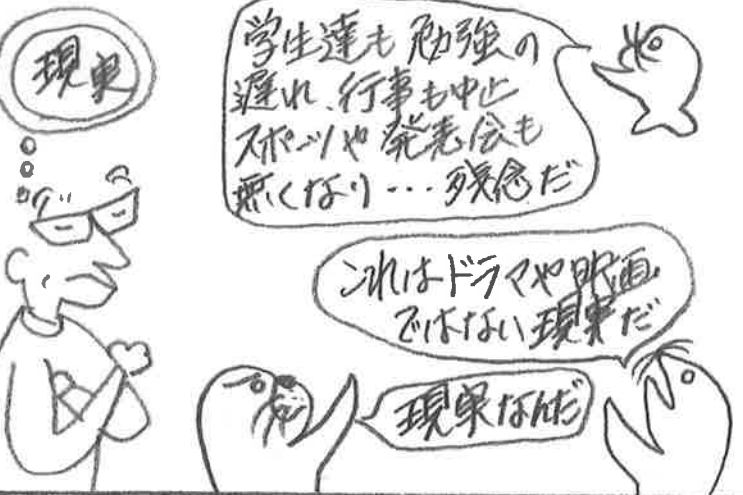 現実
学生達も勉強の
遅れ、行事も中止
スポーツや発表会も
無くなり・・・残念だ
これはドラマや映画
ではない現実だ
現実なんだ